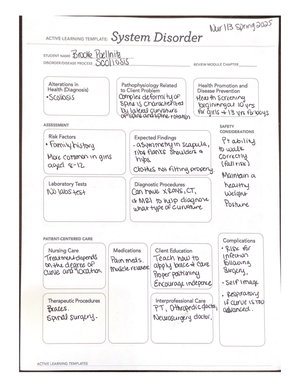 Nur 113 Spring 2025
ACTIVE LEARNING TEMPLATE: System Disorder
STUDENT NAME Brooke
DISORDER/DISEASE PROCESS Scoliosis
REVIEW MODULE CHAPTER
Alterations in
Health (Diagnosis)
• Scoliosis
Pathophysiology Related
to Client Problem
Complex deformity of
spine is characterized
by lateral curvature
of spine and spine rotation
Health Promotion and
Disease Prevention
Health screening
beginning at 10 yrs
for girls + 13 yrs for boys
ASSESSMENT
SAFETY
CONSIDERATIONS
Risk Factors
• Family history
More common in girls
aged 8-12
Expected Findings
- asymmetry in scapula,
ribs, flanks, shoulders +
hips.
Clothes not fitting properly
Pt ability
to walk
correctly
(fall risk)
Maintain a
healthy
weight
Posture
Laboratory Tests
No labs test
Diagnostic Procedures
Can have XRAYS, CT,
+ MRI to help diagnose
what type of curvature.
PATIENT-CENTERED CARE
Complications
• Risk for
infection
following
surgery.
• Self image
• Respiratory
if curve is too
advanced.
Nursing Care
Treatment depends
on the degree of
curve and location.
Medications
Pain meds.
Muscle relaxer
Client Education
Teach how to
apply brace + care
Proper positioning
Encourage indepence
Therapeutic Procedures
Braces.
Spinal surgery.
Interprofessional Care
PT, Orthopedic doctor,
Neurosurgery doctor.
ACTIVE LEARNING TEMPLATES